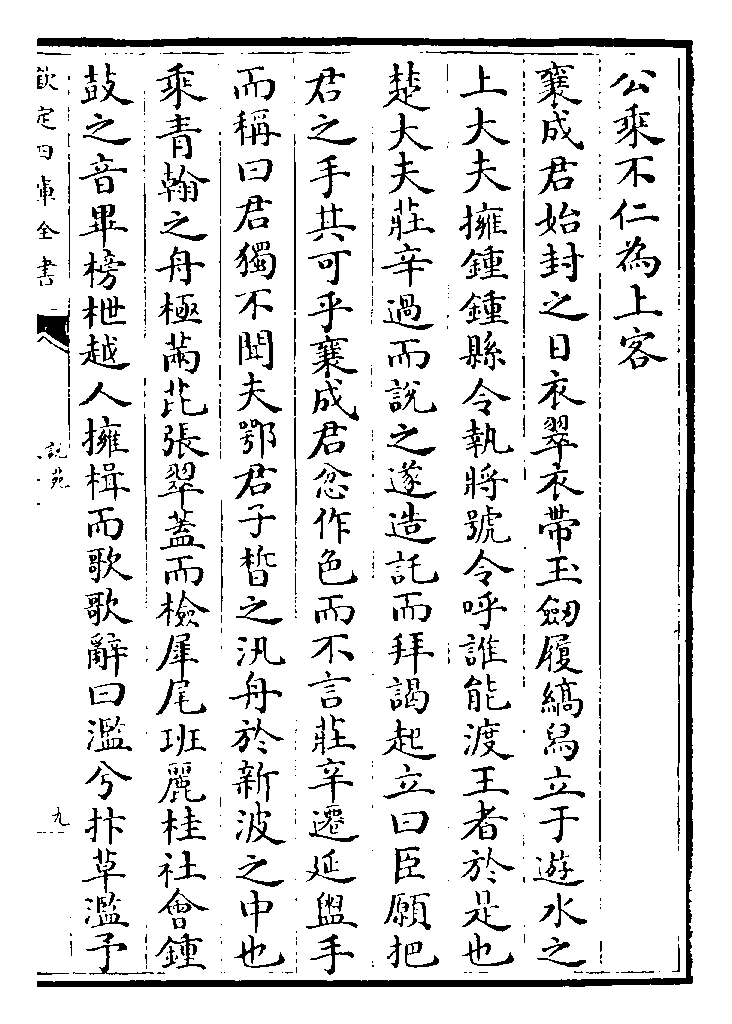 公乘不仁為上客
襄成君始封之日衣翠衣帶玉劒履縞舄立于遊水之
上大夫擁鍾鍾縣令執將號令呼誰能渡王者於是也
楚大夫莊辛過而說之遂造託而拜謁起立曰臣願把
君之手其可乎襄成君忿作色而不言莊辛遷延盥手
而稱曰君獨不聞夫鄂君子晳之汎舟於新波之中也
乘青翰之舟極𦺇芘張翠蓋而檢犀尾班麗桂社會鍾
鼓之音畢榜枻越人擁楫而歌歌辭曰濫兮抃草濫予
欽定四庫全書
說苑
九